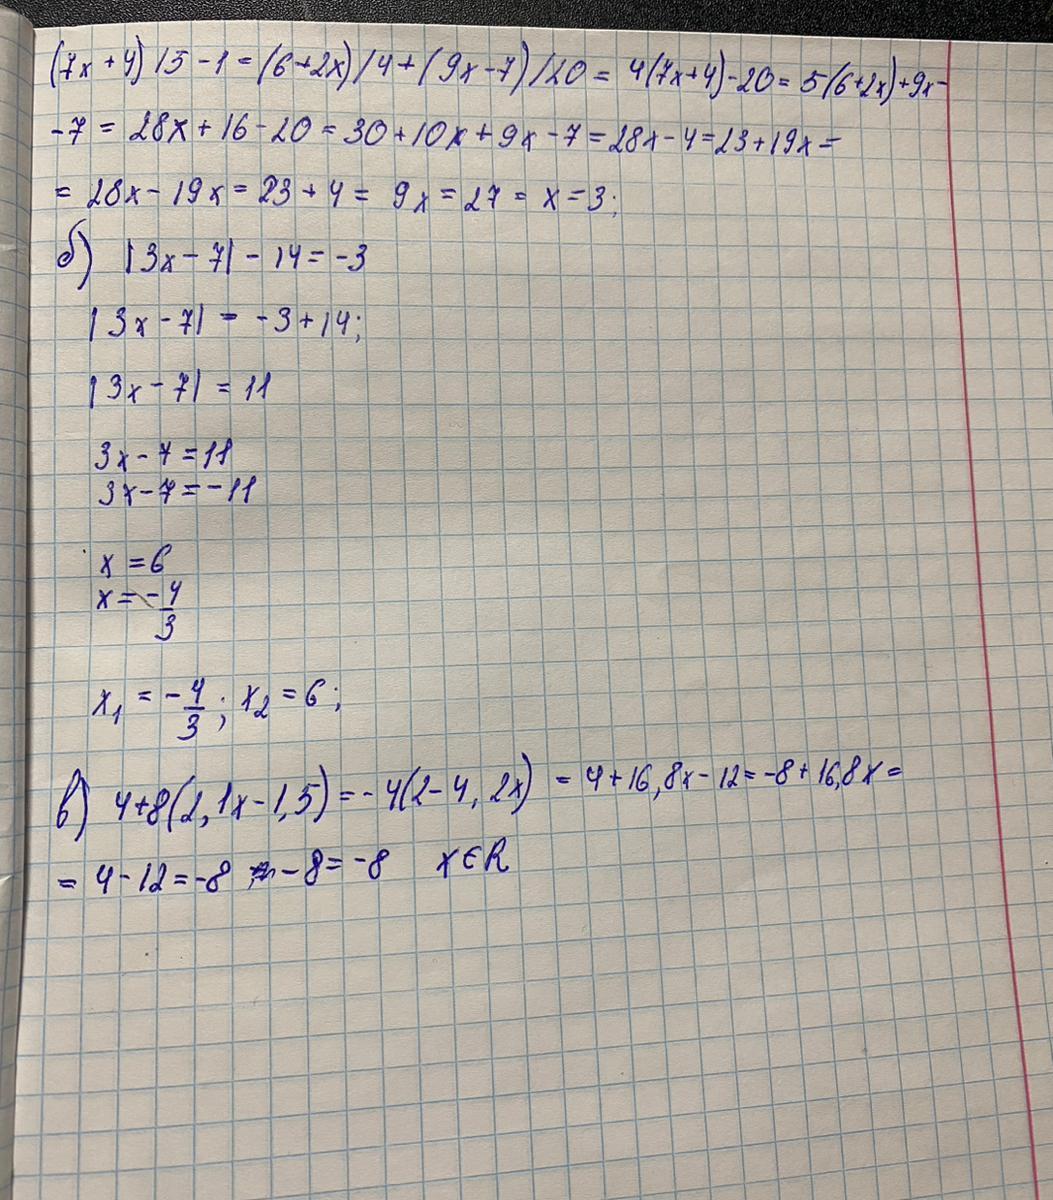 (7x+4)/5-1=(6+2x)/4+(9x-7)/20=4(7x+4)-20=5(6+2x)+9x-
-7=28x+16-20=30+10x+9x-7=28x-4=23+19x=
=28x-19x=23+4=9x=27=x=3;
б) |3x-7|-14=-3
|3x-7|=-3+14;
|3x-7|=11
3x-7=11
3x-7=-11
x=6
x=-4/3
x₁=-4/3; x₂=6;
в) 4+8(2,1x-1,5)=-4(2-4,2x)=4+16,8x-12=-8+16,8x=
=4-12=-8 -8=-8 x∈R